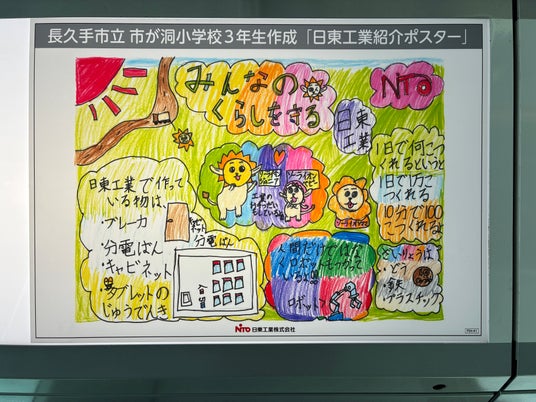 長久手市立 市が洞小学校3年生作成「日東工業紹介ポスター」
みんなの
くらしをきる
NITO
日東
工業
1日で何こつ
くれるというと
1日で1万こ
つくれる
10分で100
こつくれるよ
日東工業で作って
いる物は、
・ブレーカ
・分電ばん
・キャビネット
・タブレットの
じゅうでんき
分電ばん
ロボット
ざいりょうは
・どう
・鉄
・プラスチック
NITO 日東工業株式会社